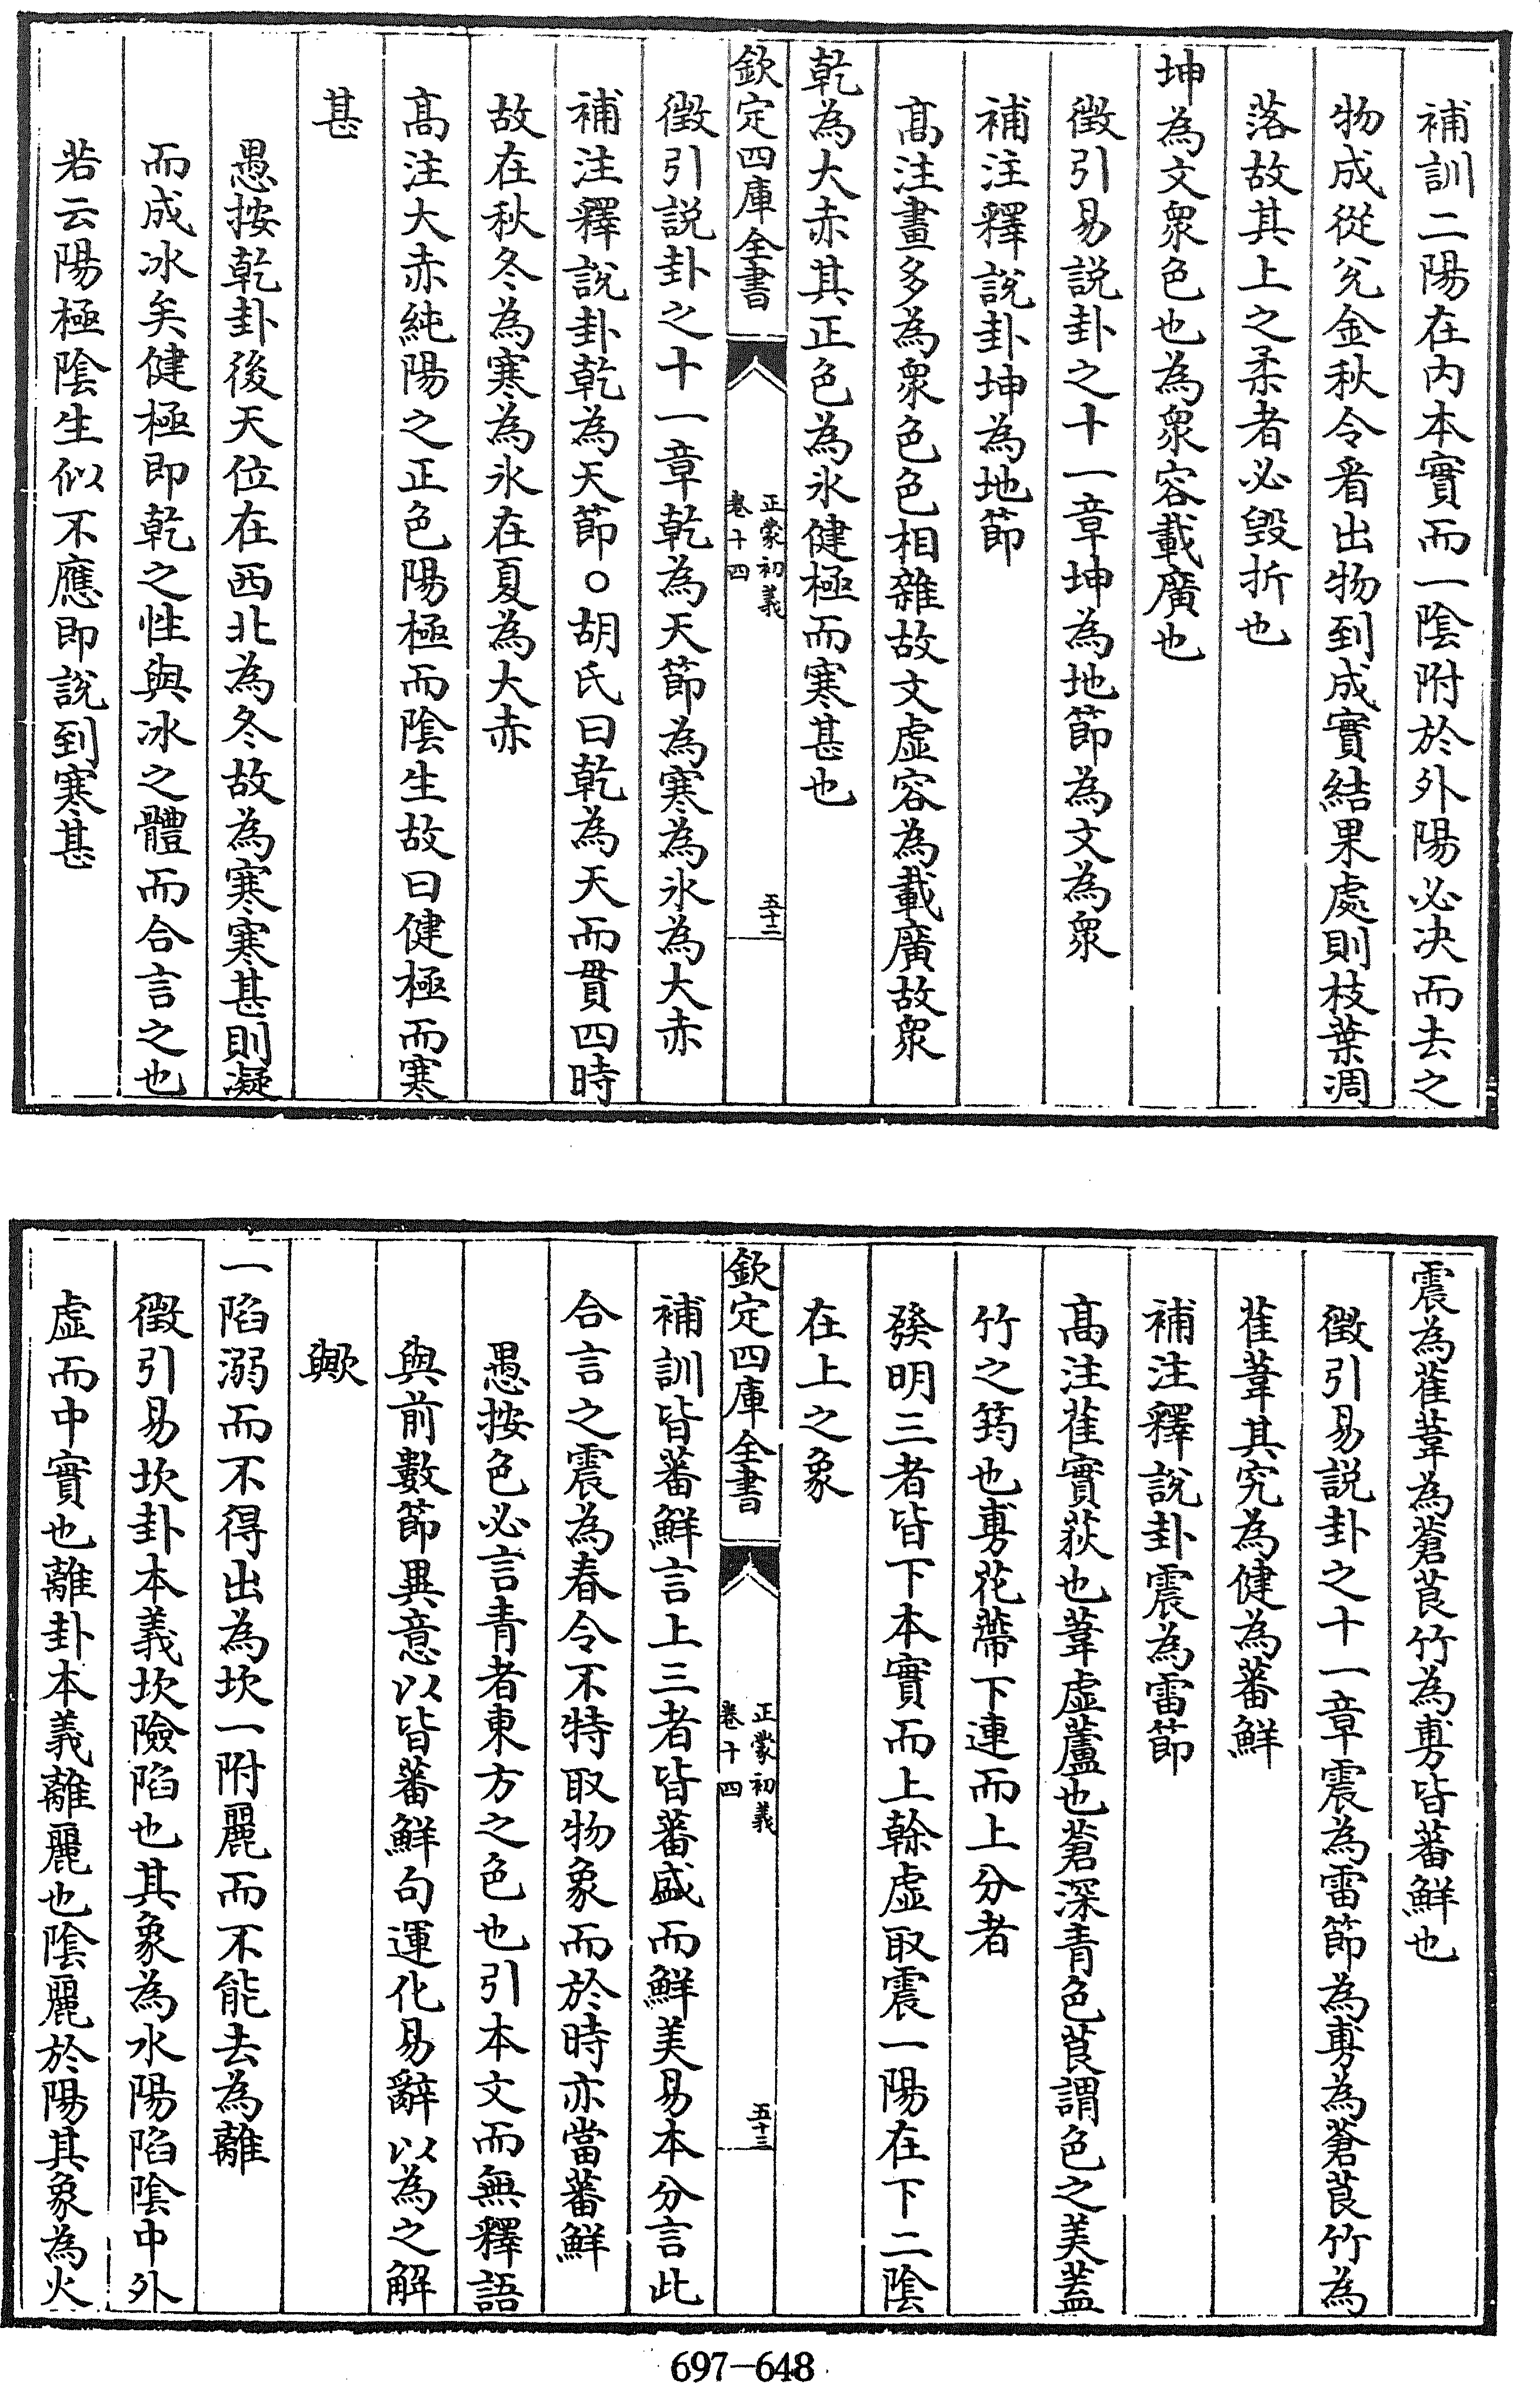 補訓二陽在内本實而一陰附於外陽必决而去之
物成從兊金秋令看出物到成實結果處則枝葉凋
落故其上之柔者必毀折也
坤為文衆色也為衆容載廣也
徴引易説卦之十一章坤為地節為文為衆
補注釋說卦坤為地節
髙注畫多為衆色色相雜故文虛容為載廣故衆
乾為大赤其正色為氷健極而寒甚也
欽定四庫全書
正蒙初義
卷十四
五十二
徴引説卦之十一章乾為天節為寒為氷為大赤
補注釋說卦乾為天節○胡氏曰乾為天而貫四時
故在秋冬為寒為氷在夏為大赤
髙注大赤純陽之正色陽極而陰生故曰健極而寒
甚
愚按乾卦後天位在西北為冬故為寒寒甚則凝
而成冰矣健極即乾之性與冰之體而合言之也
若云陽極陰生似不應即說到寒甚
震為萑葦為蒼茛竹為旉皆蕃鮮也
徴引易説卦之十一章震為雷節為旉為蒼茛竹為
萑葦其究為健為蕃鮮
補注釋說卦震為雷節
髙注萑實荻也葦虛蘆也蒼深青色茛謂色之美蓋
竹之筠也旉花蔕下連而上分者
發明三者皆下本實而上幹虛取震一陽在下二陰
在上之象
欽定四庫全書
正蒙初義
卷十四
五十三
補訓皆蕃鮮言上三者皆蕃盛而鮮美易本分言此
合言之震為春令不特取物象而於時亦當蕃鮮
愚按色必言青者東方之色也引本文而無釋語
與前數節異意以皆蕃鮮句運化易辭以為之解
歟
一陷溺而不得出為坎一附麗而不能去為離
徴引易坎卦本義坎險陷也其象為水陽陷陰中外
虛而中實也離卦本義離麗也陰麗於陽其象為火
697-648